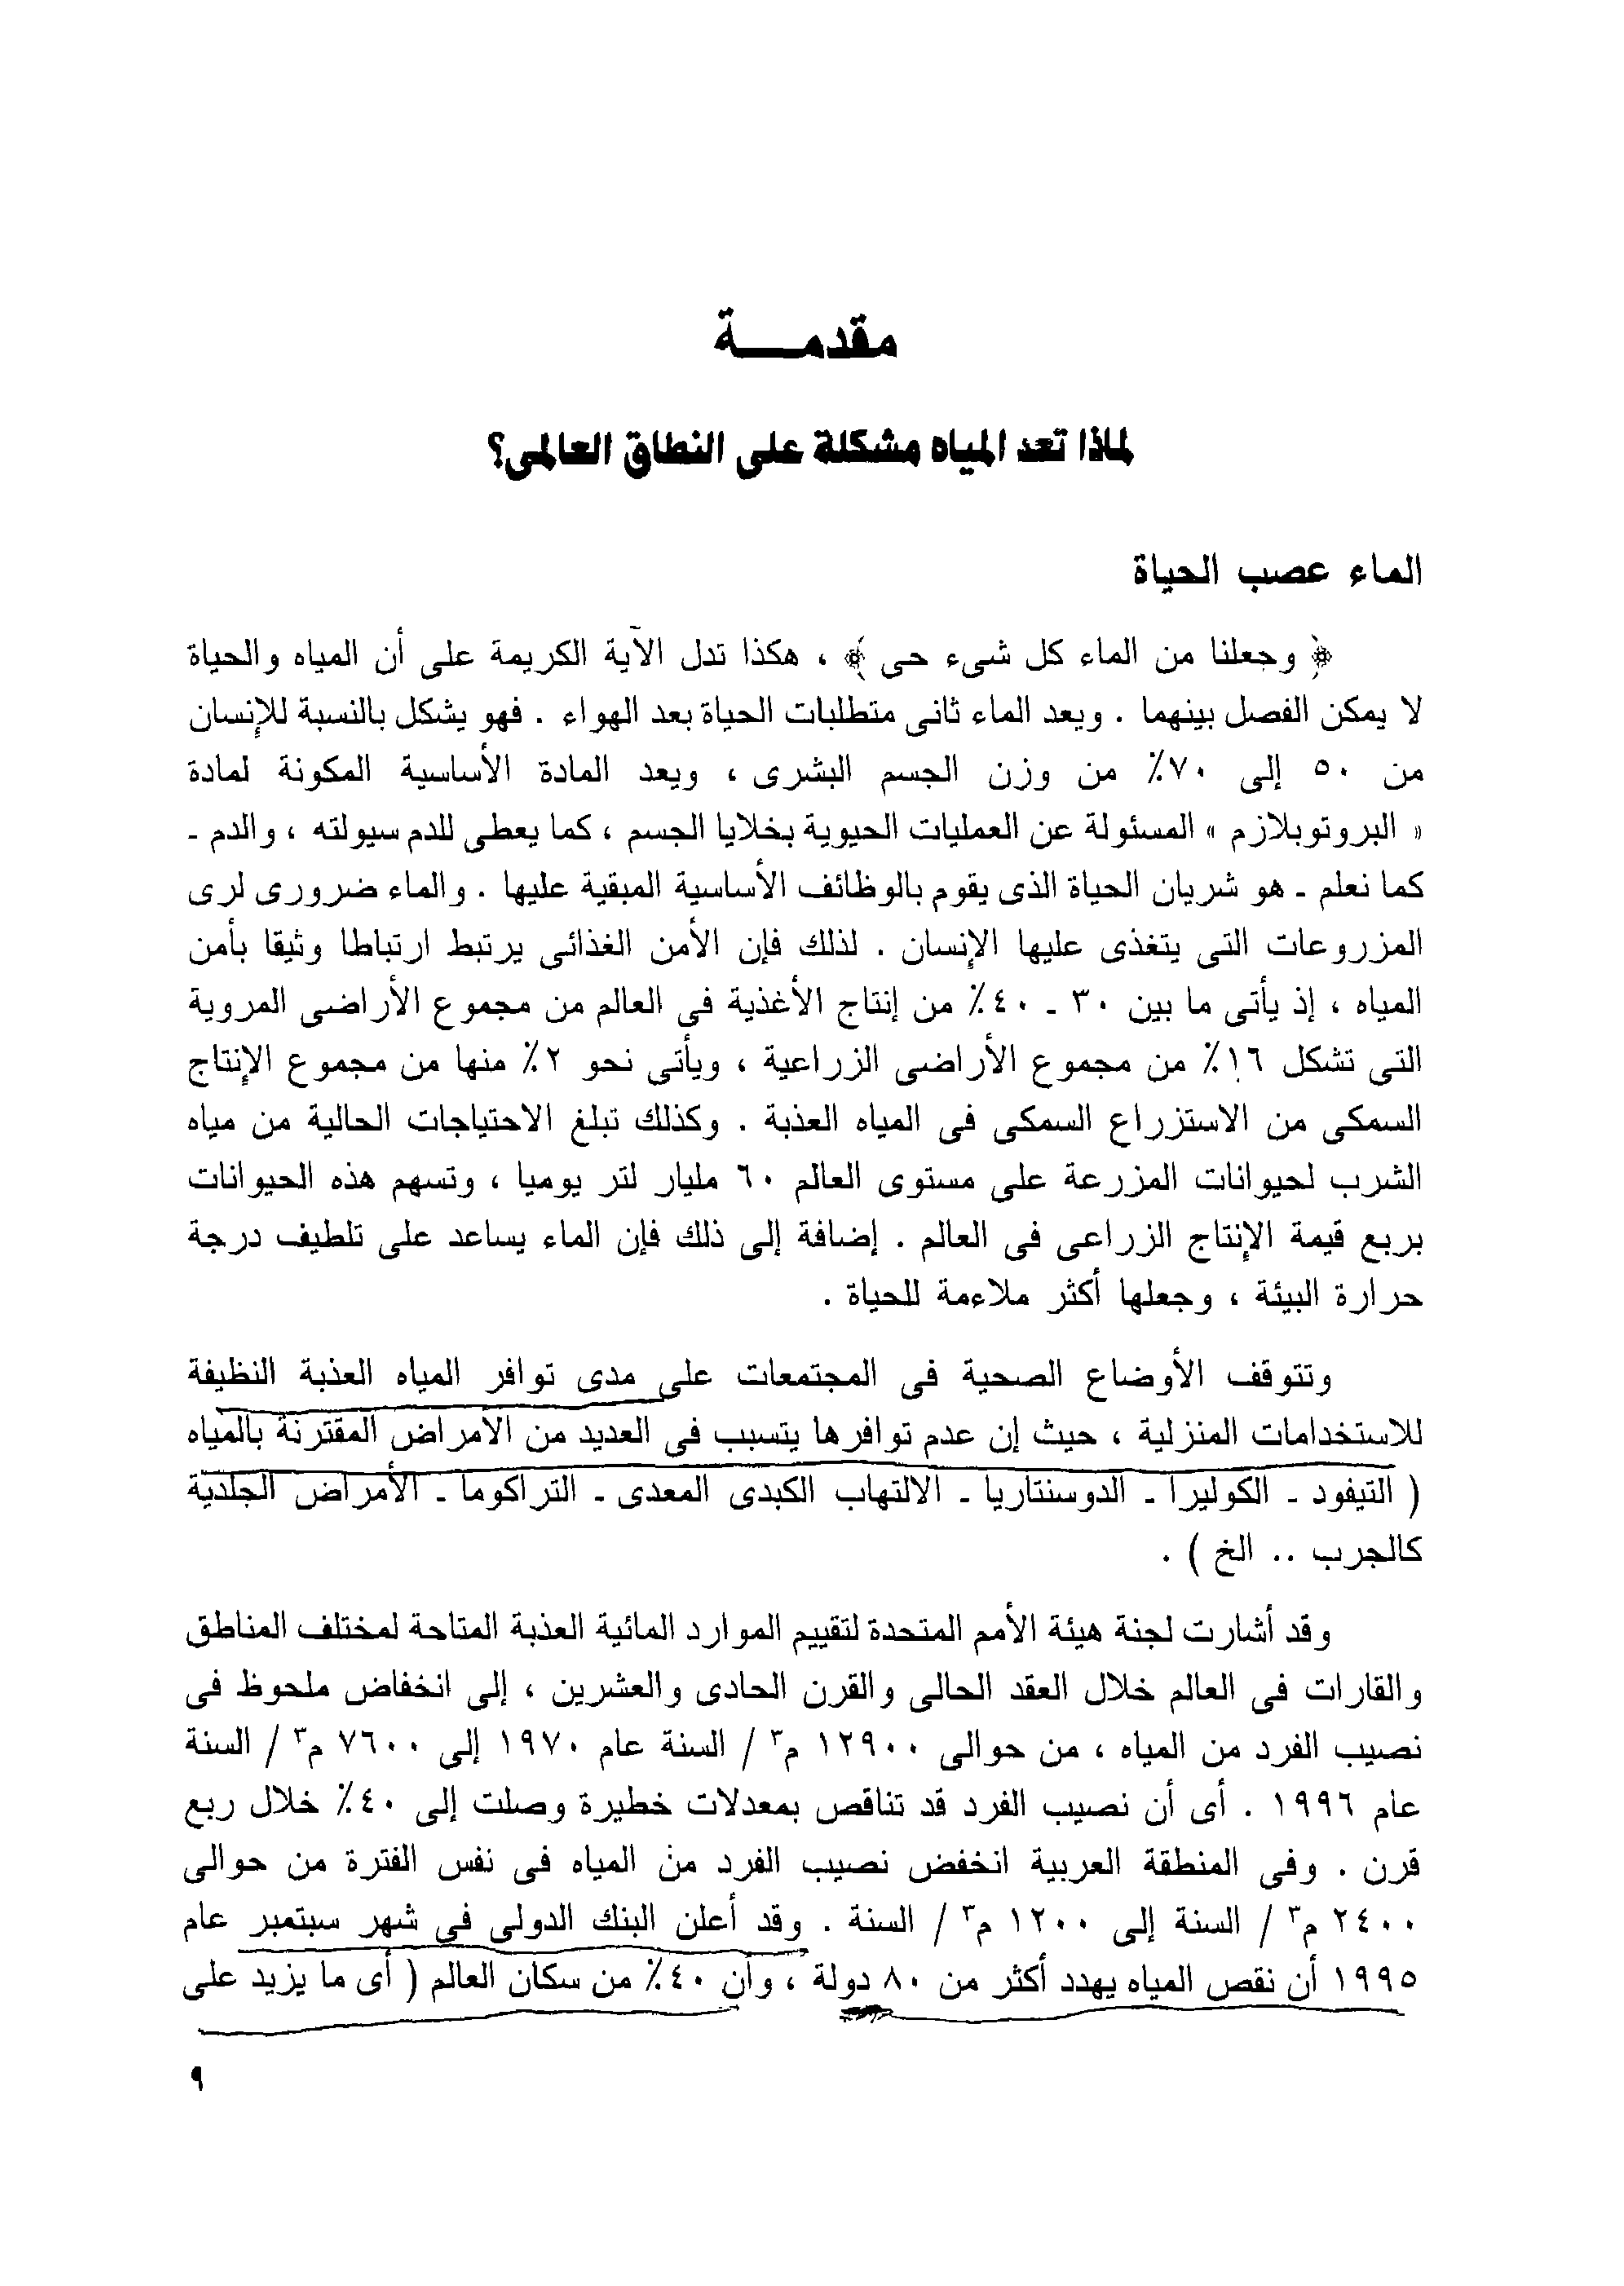 مقدمـــة
لماذا تعد المياه مشكلة على النطاق العالمى؟
الماء عصب الحياة
﴿ وجعلنا من الماء كل شىء حى ﴾ ، هكذا تدل الآية الكريمة على أن المياه والحياة
لا يمكن الفصل بينهما . ويعد الماء ثانى متطلبات الحياة بعد الهواء . فهو يشكل بالنسبة للإنسان
من ٥٠ إلى ٧٠٪ من وزن الجسم البشرى ، ويعد المادة الأساسية المكونة لمادة
« البروتوبلازم » المسئولة عن العمليات الحيوية بخلايا الجسم ، كما يعطى للدم سيولته ، والدم ـ
كما نعلم ـ هو شريان الحياة الذى يقوم بالوظائف الأساسية المبقية عليها . والماء ضرورى لرى
المزروعات التى يتغذى عليها الإنسان . لذلك فإن الأمن الغذائى يرتبط ارتباطا وثيقا بأمن
المياه ، إذ يأتى ما بين ٣٠ ـ ٤٠٪ من إنتاج الأغذية فى العالم من مجموع الأراضى المروية
التى تشكل ١٦٪ من مجموع الأراضى الزراعية ، ويأتى نحو ٢٪ منها من مجموع الإنتاج
السمكى من الاستزراع السمكى فى المياه العذبة . وكذلك تبلغ الاحتياجات الحالية من مياه
الشرب لحيوانات المزرعة على مستوى العالم ٦٠ مليار لتر يوميا ، وتسهم هذه الحيوانات
بربع قيمة الإنتاج الزراعى فى العالم . إضافة إلى ذلك فإن الماء يساعد على تلطيف درجة
حرارة البيئة ، وجعلها أكثر ملاءمة للحياة .
وتتوقف الأوضاع الصحية فى المجتمعات على مدى توافر المياه العذبة النظيفة
للاستخدامات المنزلية ، حيث إن عدم توافرها يتسبب فى العديد من الأمراض المقترنة بالمياه
( التيفود ـ الكوليرا ـ الدوسنتاريا ـ الالتهاب الكبدى المعدى ـ التراكوما ـ الأمراض الجلدية
كالجرب .. الخ ) .
وقد أشارت لجنة هيئة الأمم المتحدة لتقييم الموارد المائية العذبة المتاحة لمختلف المناطق
والقارات فى العالم خلال العقد الحالى والقرن الحادى والعشرين ، إلى انخفاض ملحوظ فى
نصيب الفرد من المياه ، من حوالى ١٢٩٠٠ م٣ / السنة عام ١٩٧٠ إلى ٧٦٠٠ م٣ / السنة
عام ١٩٩٦ . أى أن نصيب الفرد قد تناقص بمعدلات خطيرة وصلت إلى ٤٠٪ خلال ربع
قرن . وفى المنطقة العربية انخفض نصيب الفرد من المياه فى نفس الفترة من حوالى
٢٤٠٠ م٣ / السنة إلى ١٢٠٠ م٣ / السنة . وقد أعلن البنك الدولى فى شهر سبتمبر عام
١٩٩٥ أن نقص المياه يهدد أكثر من ٨٠ دولة ، وأن ٤٠٪ من سكان العالم ( أى ما يزيد على
٩